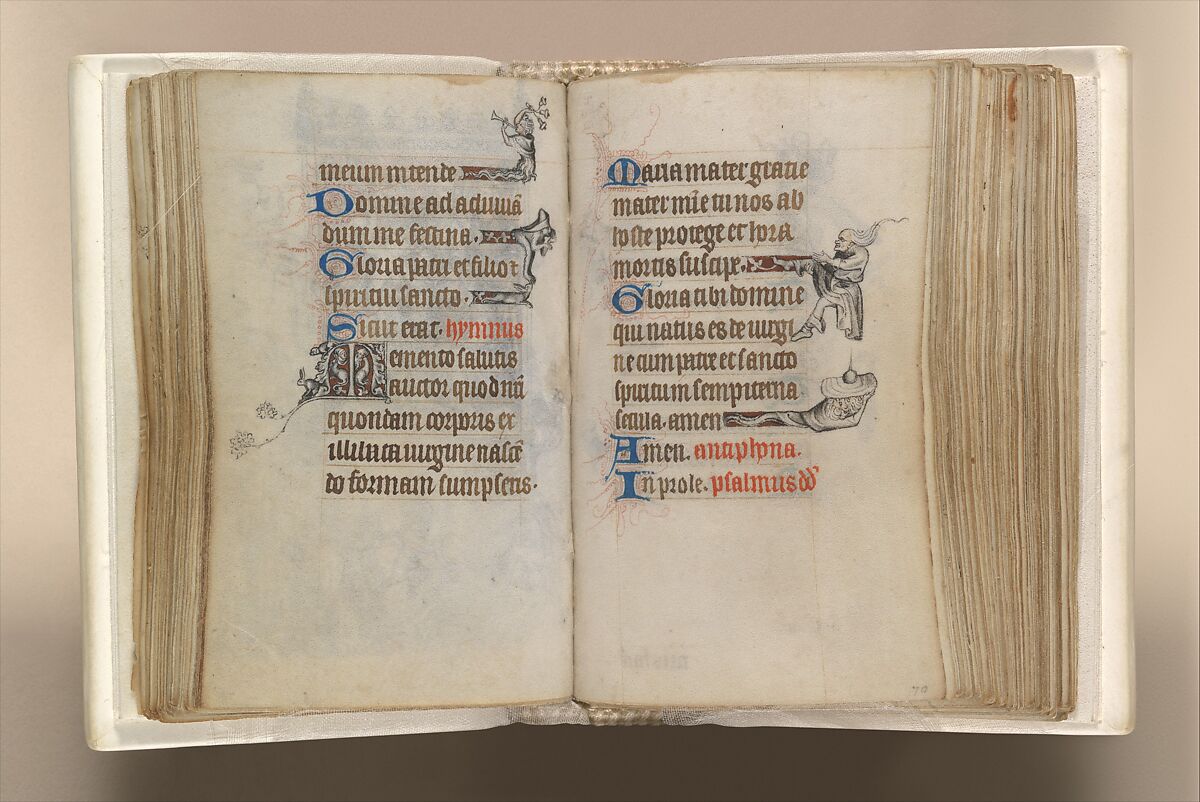 meum intende
Domine ad adiuuā
dum me festina.
Gloria patri et filio ⁊
spiritui sancto.
Sicut erat. hymnus
Memento salutis
auctor quod nrī
quondam corporis ex
illibata uirgine nascē
do formam sumpseris.
Maria mater gratie
mater mīe tu nos ab
hoste protege et hora
mortis suscipe.
Gloria tibi domine
qui natus es de uirgi
ne cum patre et sancto
spiritum sempiterna
secula. amen
Amen. antiphona.
In prole. psalmus dd'
70